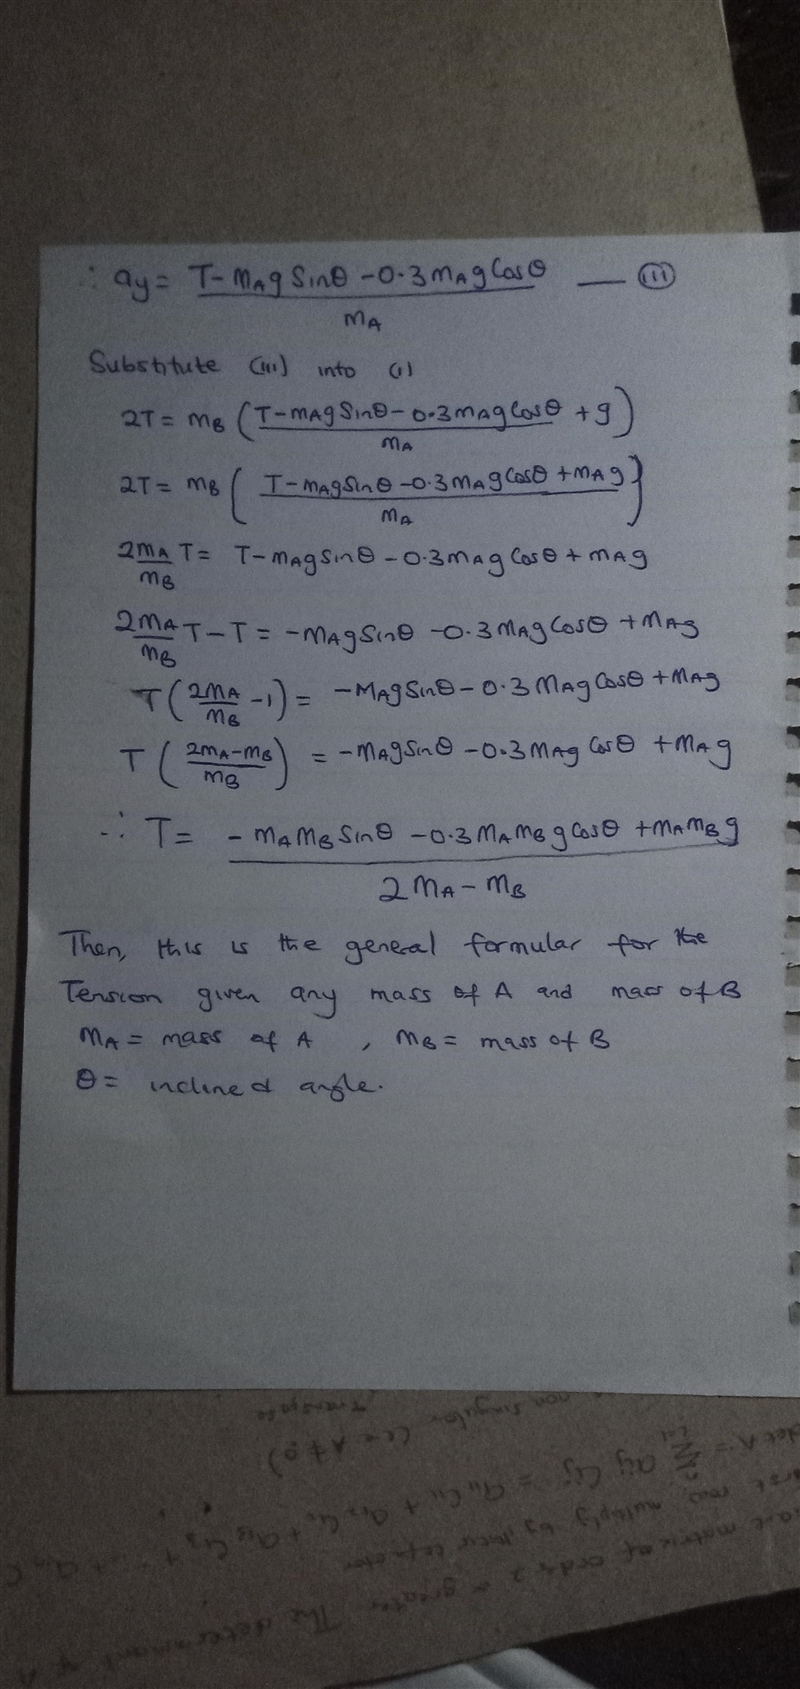 ∴ ay = T - mAg Sinθ - 0.3 mAg Cosθ / mA — (iii)
Substitute (iii) into (i)
2T = mB ( T - mAg Sinθ - 0.3 mAg Cosθ / mA + g )
2T = mB ( T - mAg Sinθ - 0.3 mAg Cosθ + mAg / mA )
2mA / mB T = T - mAg Sinθ - 0.3 mAg Cosθ + mAg
2mA / mB T - T = -mAg Sinθ - 0.3 mAg Cosθ + mAg
T ( 2mA / mB - 1 ) = -mAg Sinθ - 0.3 mAg Cosθ + mAg
T ( 2mA - mB / mB ) = -mAg Sinθ - 0.3 mAg Cosθ + mAg
∴ T = - mAmB Sinθ - 0.3 mAmB g Cosθ + mAmB g / 2mA - mB
Then, this is the general formular for the
Tension given any mass of A and mass of B
mA = mass of A , mB = mass of B
θ = inclined angle.